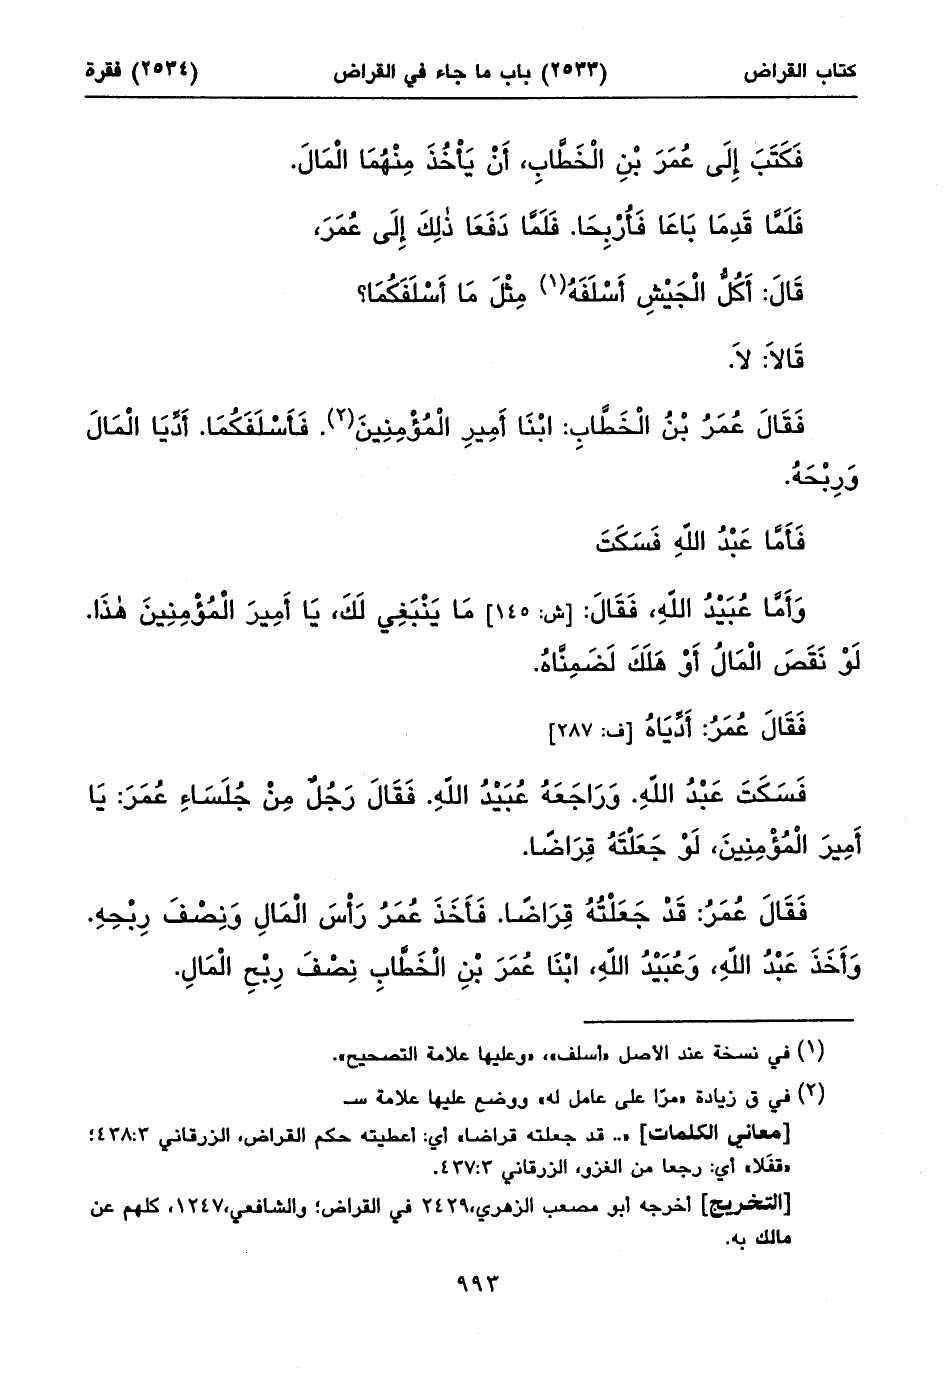 كتاب القراض (٢٥٣٣) باب ما جاء في القراض (٢٥٣٤) فقرة
فَكَتَبَ إِلَى عُمَرَ بْنِ الْخَطَّابِ، أَنْ يَأْخُذَ مِنْهُمَا الْمَالَ.
فَلَمَّا قَدِمَا بَاعَا فَأُرْبِحَا. فَلَمَّا دَفَعَا ذٰلِكَ إِلَى عُمَرَ،
قَالَ: أَكُلُّ الْجَيْشِ أَسْلَفَهُ(١) مِثْلَ مَا أَسْلَفَكُمَا؟
قَالاَ: لاَ.
فَقَالَ عُمَرُ بْنُ الْخَطَّابِ: ابْنَا أَمِيرِ الْمُؤْمِنِينَ(٢). فَأَسْلَفَكُمَا. أَدِّيَا الْمَالَ
وَرِبْحَهُ.
فَأَمَّا عَبْدُ اللّهِ فَسَكَتَ
وَأَمَّا عُبَيْدُ اللّهِ، فَقَالَ: [ش: ١٤٥] مَا يَنْبَغِي لَكَ، يَا أَمِيرَ الْمُؤْمِنِينَ هٰذَا.
لَوْ نَقَصَ الْمَالُ أَوْ هَلَكَ لَضَمِنَّاهُ.
فَقَالَ عُمَرُ: أَدِّيَاهُ [ف: ٢٨٧]
فَسَكَتَ عَبْدُ اللّهِ. وَرَاجَعَهُ عُبَيْدُ اللّهِ. فَقَالَ رَجُلٌ مِنْ جُلَسَاءِ عُمَرَ: يَا
أَمِيرَ الْمُؤْمِنِينَ، لَوْ جَعَلْتَهُ قِرَاضًا.
فَقَالَ عُمَرُ: قَدْ جَعَلْتُهُ قِرَاضًا. فَأَخَذَ عُمَرُ رَأْسَ الْمَالِ وَنِصْفَ رِبْحِهِ.
وَأَخَذَ عَبْدُ اللّهِ، وَعُبَيْدُ اللّهِ، ابْنَا عُمَرَ بْنِ الْخَطَّابِ نِصْفَ رِبْحِ الْمَالِ.
(١) في نسخة عند الأصل «أسلف»، «وعليها علامة التصحيح».
(٢) في ق زيادة «مرّا على عامل له» ووضع عليها علامة سـ
[معاني الكلمات] «.. قد جعلته قراضا» أي: أعطيته حكم القراض، الزرقاني ٤٣٨:٣؛
«قفلا» أي: رجعا من الغزو، الزرقاني ٤٣٧:٣.
[التخريج] أخرجه أبو مصعب الزهري،٢٤٢٩ في القراض؛ والشافعي،١٢٤٧، كلهم عن
مالك به.
٩٩٣